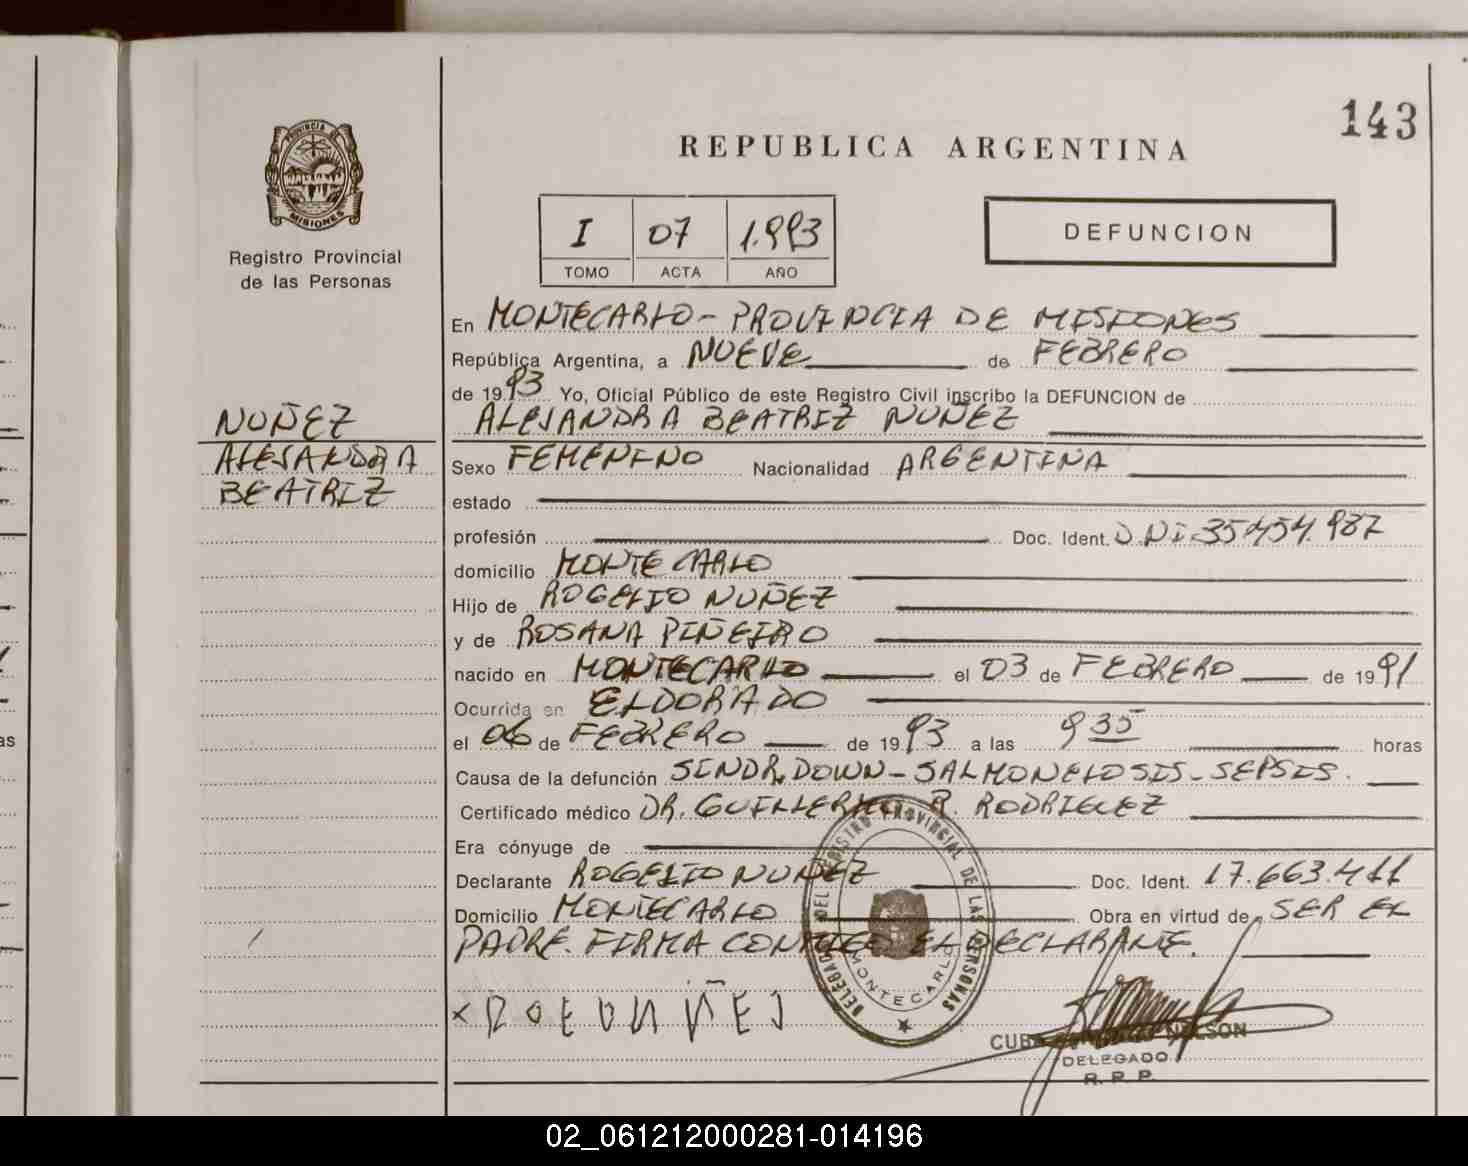 143
REPUBLICA ARGENTINA
PROVINCIA DE
MISIONES
Registro Provincial
de las Personas
I 07 1.993
TOMO ACTA AÑO
DEFUNCION
En MONTECARLO - PROVINCIA DE MISIONES
República Argentina, a NUEVE de FEBRERO
de 1993 Yo, Oficial Público de este Registro Civil inscribo la DEFUNCION de
ALEJANDRA BEATRIZ NUÑEZ
NUÑEZ
ALEJANDRA
BEATRIZ
Sexo FEMENINO Nacionalidad ARGENTINA
estado
profesión Doc. Ident. D.N.I. 35454.987
domicilio MONTECARLO
Hijo de ROGELIO NUÑEZ
y de ROSANA PIÑEIRO
nacido en MONTECARLO el 03 de FEBRERO de 1991
Ocurrida en ELDORADO
el 06 de FEBRERO de 1993 a las 9 35 horas
Causa de la defunción SINDR. DOWN - SALMONELOSIS - SEPSIS.
Certificado médico DR. GUILLERMO R. RODRIGUEZ
Era cónyuge de
Declarante ROGELIO NUÑEZ Doc. Ident. 17.663.411
Domicilio MONTECARLO Obra en virtud de SER EL
PADRE. FIRMA CONMIGO EL DECLARANTE.
DEL REGISTRO PROVINCIAL DE LAS PERSONAS
MONTECARLO
NELSON
DELEGADO
R. P. P.
02_061212000281-014196